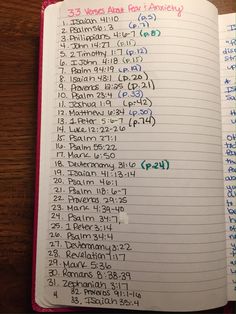 33 Verses About Fear & Anxiety
1. Isaiah 41:10 (p.5)
2. Psalm 56:3 (p.7)
3. Philippians 4:6-7 (p.8)
4. John 14:27 (p.11)
5. 2 Timothy 1:7 (p.12)
6. 1 John 4:18 (p.15)
7. Psalm 94:19 (p.18)
8. Isaiah 43:1 (p.20)
9. Proverbs 12:25 (p.21)
10. Psalm 23:4 (p.33)
11. Joshua 1:9 (p.42)
12. Matthew 6:34 (p.50)
13. 1 Peter 5:6-7 (p.74)
14. Luke 12:22-26
15. Psalm 27:1
16. Psalm 55:22
17. Mark 6:50
18. Deuteronomy 31:6 (p.24)
19. Isaiah 41:13-14
20. Psalm 46:1
21. Psalm 118:6-7
22. Proverbs 29:25
23. Mark 4:39-40
24. Psalm 34:7
25. 1 Peter 3:14
26. Psalm 34:4
27. Deuteronomy 3:22
28. Revelation 1:17
29. Mark 5:36
30. Romans 8:38-39
31. Zephaniah 3:17
32. 91:1-16
33. Isaiah 35:4